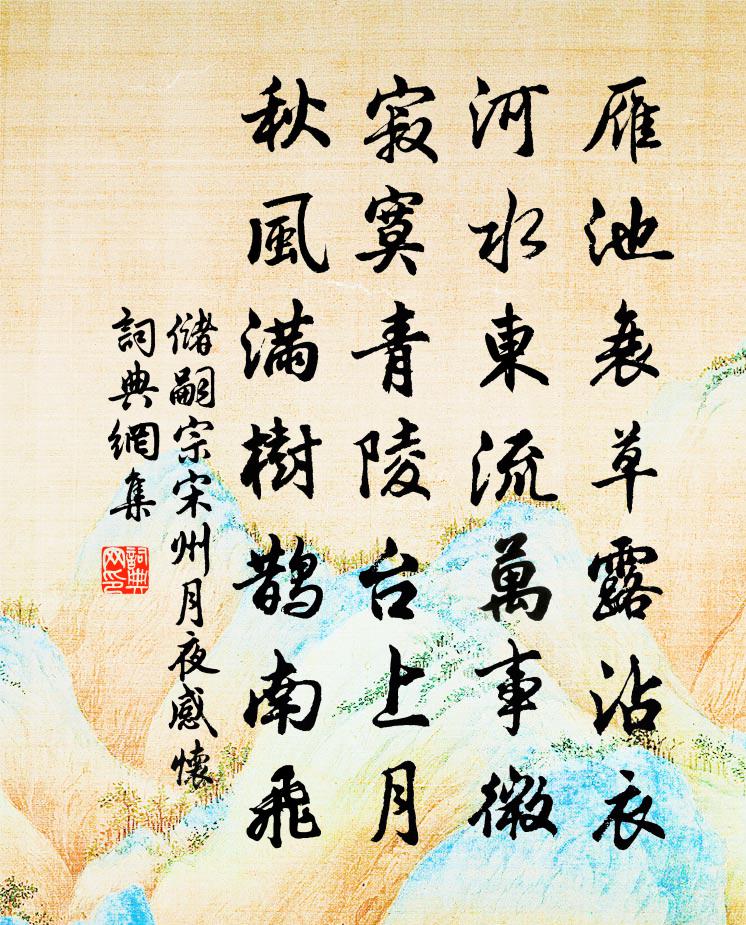 雁池衰草露沾衣
河水東流萬事微
寂寞青陵台上月
秋風滿樹鵲南飛
儲嗣宗宋州月夜感懷
詞典網集
詞典网印